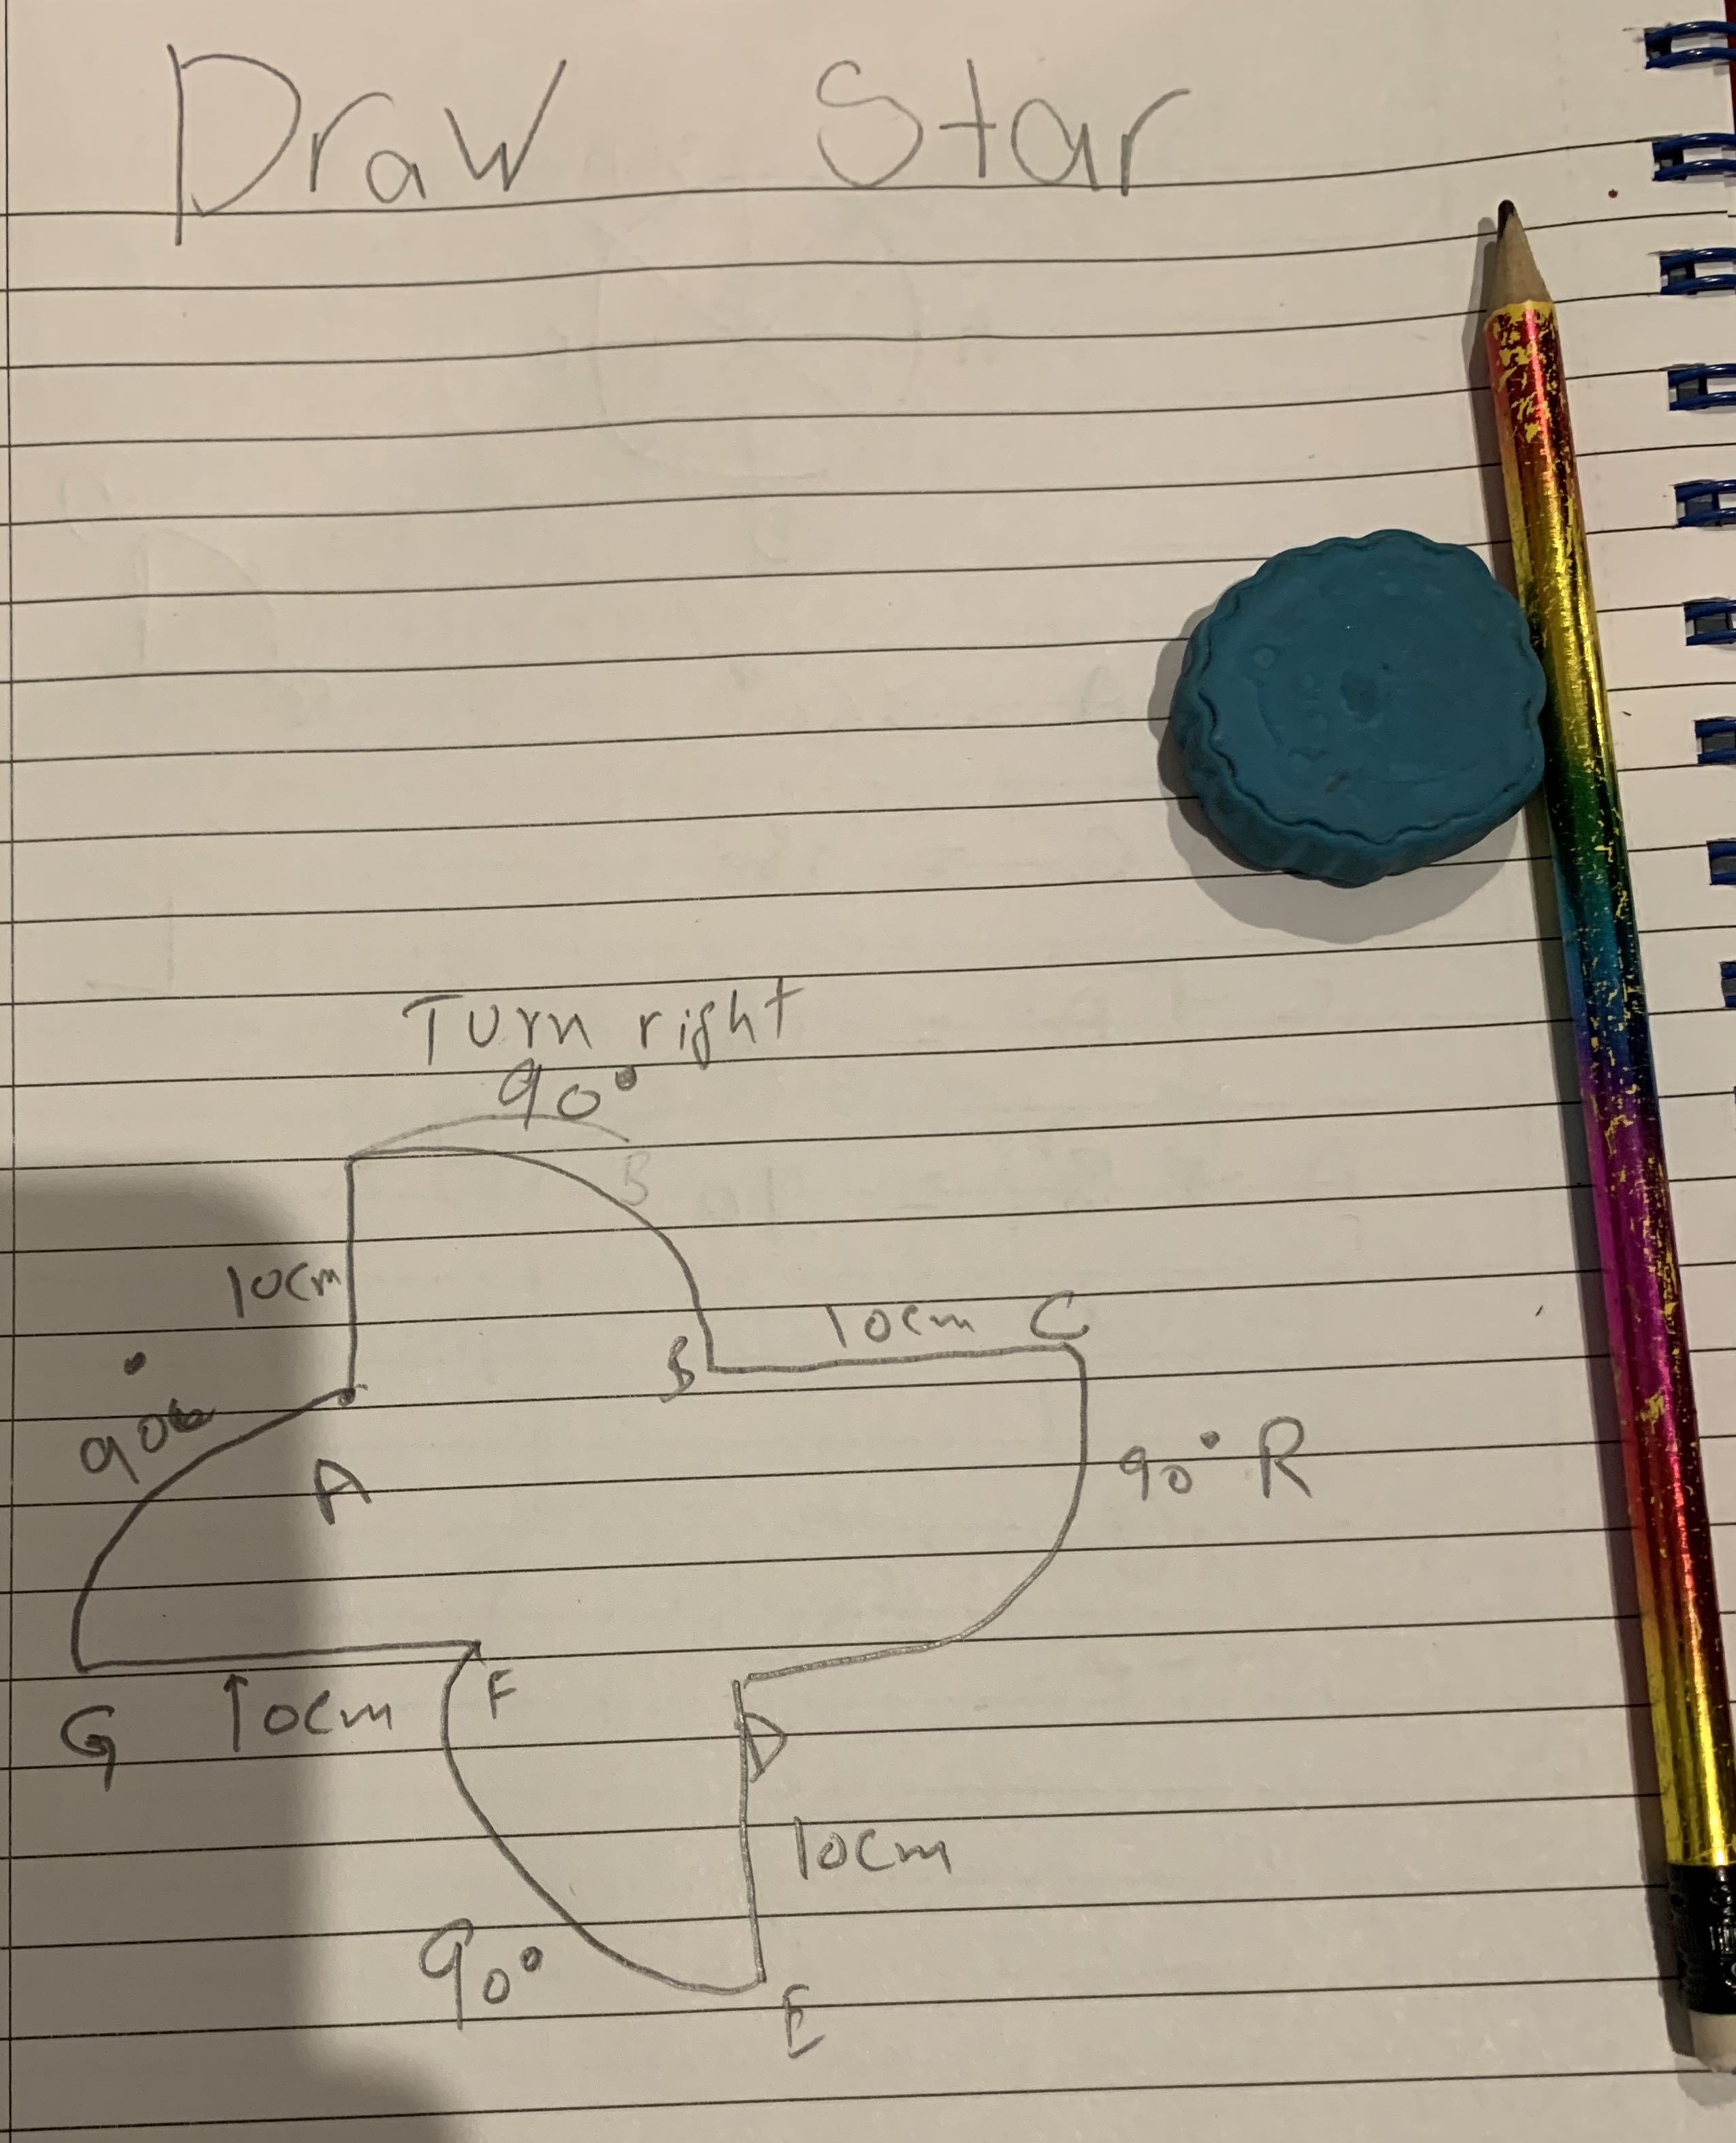 Draw Star
Turn right
90°
B
10cm
10cm C
B
90°
90° R
A
F
G 10cm
D
10cm
90°
E